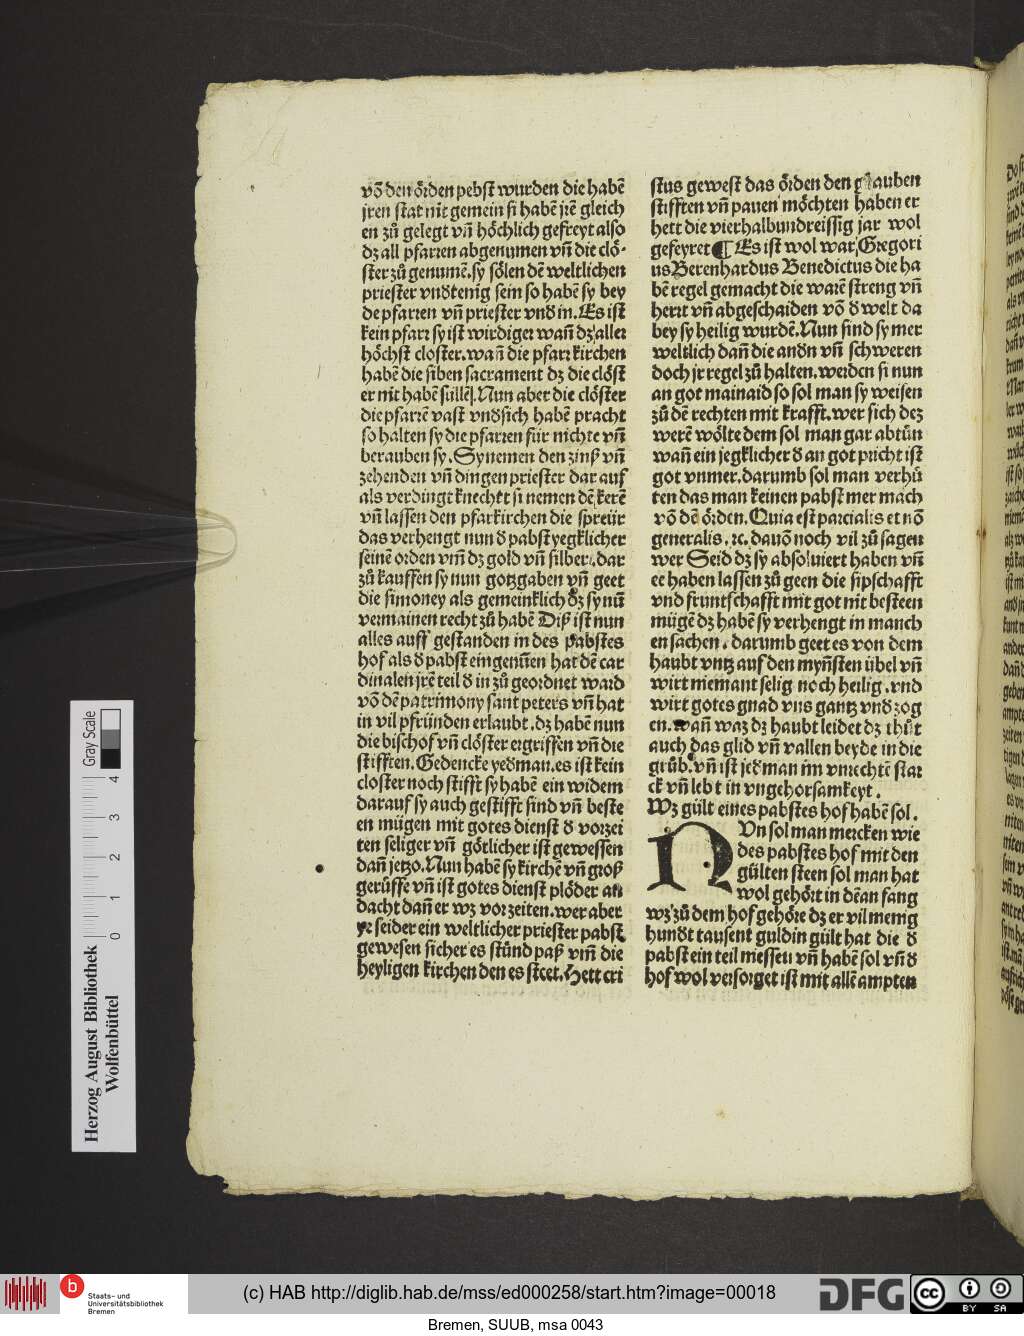 võ den örden pebst wurden die habẽ
jren stat nit gemein si habẽ jrẽ gleich
en zů gelegt vñ höchlich gefreyt also
dz all pfarren abgenumen vñ die clö-
ster zů genumẽ. sy sölen dẽ weltlichen
priester vnd̕tenig sein so habẽ sy bey
de pfarren vñ priester vnd̕ in. Es ist
kein pfarr sy ist wirdiger wañ dz aller
höchst closter. wañ die pfarr kirchen
habẽ die siben sacrament dz die clöst
er nit habẽ süllẽ. Nun aber die clöster
die pfarrẽ vast vnd̕sich habẽ pracht
so halten sy die pfarren für nichte vñ
berauben sy. Sy nemen den zinß vñ
zehenden vñ dingen priester dar auf
als verdingt knecht si nemen dẽ kerẽ
vñ lassen den pfarkirchen die spreür
das verhengt nun d̕ pabst yegklicher
seinẽ orden vm̃ dz gold vñ silber. dar
zů kauffen sy nun gotzgaben vñ geet
die simoney als gemeinklich dz sy nũ
vermainen recht zů habẽ Diß ist nun
alles auff gestanden in des pabstes
hof als d̕ pabst eingenũen hat dẽ car
dinalen jrẽ teil d̕ in zů geordnet ward
võ dẽ patrimony sant peters vñ hat
in vil pfründen erlaubt. dz habẽ nun
die bischof vñ clöster ergriffen vñ die
stifften. Gedencke yed̕man. es ist kein
closter noch stifft sy habẽ ein widem
darauf sy auch gestifft sind vñ beste
en mügen mit gotes dienst d̕ vorzei
ten seliger vñ götlicher ist gewessen
dañ jetzo. Nun habẽ sy kirchẽ vñ groß
gerüffe vñ ist gotes dienst plöder an
dacht dañ er wz vor zeiten. wer aber
ye seider ein weltlicher priester pabst
gewesen sicher es stünd paß vm̃ die
heyligen kirchen den es steet. Hett cri
stus gewest das örden den glauben
stifften vñ pauen möchten haben er
hett die vierhalbundreissig jar wol
gefeyret ¶ Es ist wol war Gregori
us Berenhardus Benedictus die ha
bẽ regel gemacht die warẽ streng vñ
herrt vñ abgeschaiden võ d̕ welt da
bey sy heilig wurdẽ. Nun sind sy mer
weltlich dañ die and̕n vñ schweren
doch jr regel zů halten. werden si nun
an got mainaid so sol man sy weisen
zů dẽ rechten mit krafft. wer sich dez
werẽ wölte dem sol man gar abtůn
wañ ein jegklicher d̕ an got pricht ist
got vnmer. darumb sol man verhů
ten das man keinen pabst mer mach
võ dẽ örden. Quia est parcialis et nõ
generalis. ⁊c. dauõ noch vil zů sagen
wer Seid dz sy absoluiert haben vñ
ee haben lassen zů geen die sipschafft
vnd fruntschafft mit got nit besteen
mügẽ dz habẽ sy verhengt in manch
en sachen. darumb geet es von dem
haubt vntz auf den myñsten übel vñ
wirt niemant selig noch heilig. vnd
wirt gotes gnad vns gantz vnd̕ zog
en. wañ waz dz haubt leidet dz thůt
auch das glid vñ vallen beyde in die
grůb. vñ ist jed̕man im vnrechtẽ star
ck vñ lebt in vngehorsamkeyt.
Wz gült eines pabstes hof habẽ sol.
NVn sol man mercken wie
des pabstes hof mit den
gülten steen sol man hat
wol gehört in dẽ an fang
wz zů dem hof gehöre dz er vil menig
hund̕t tausent guldin gült hat die d̕
pabst ein teil messen vñ habẽ sol vñ d̕
hof wol versorget ist mit allẽ ampten
Gray Scale
0 1 2 3 4
Herzog August Bibliothek
Wolfenbüttel
Staats- und
Universitätsbibliothek
Bremen
(c) HAB http://diglib.hab.de/mss/ed000258/start.htm?image=00018
DFG
cc BY SA
Bremen, SUUB, msa 0043